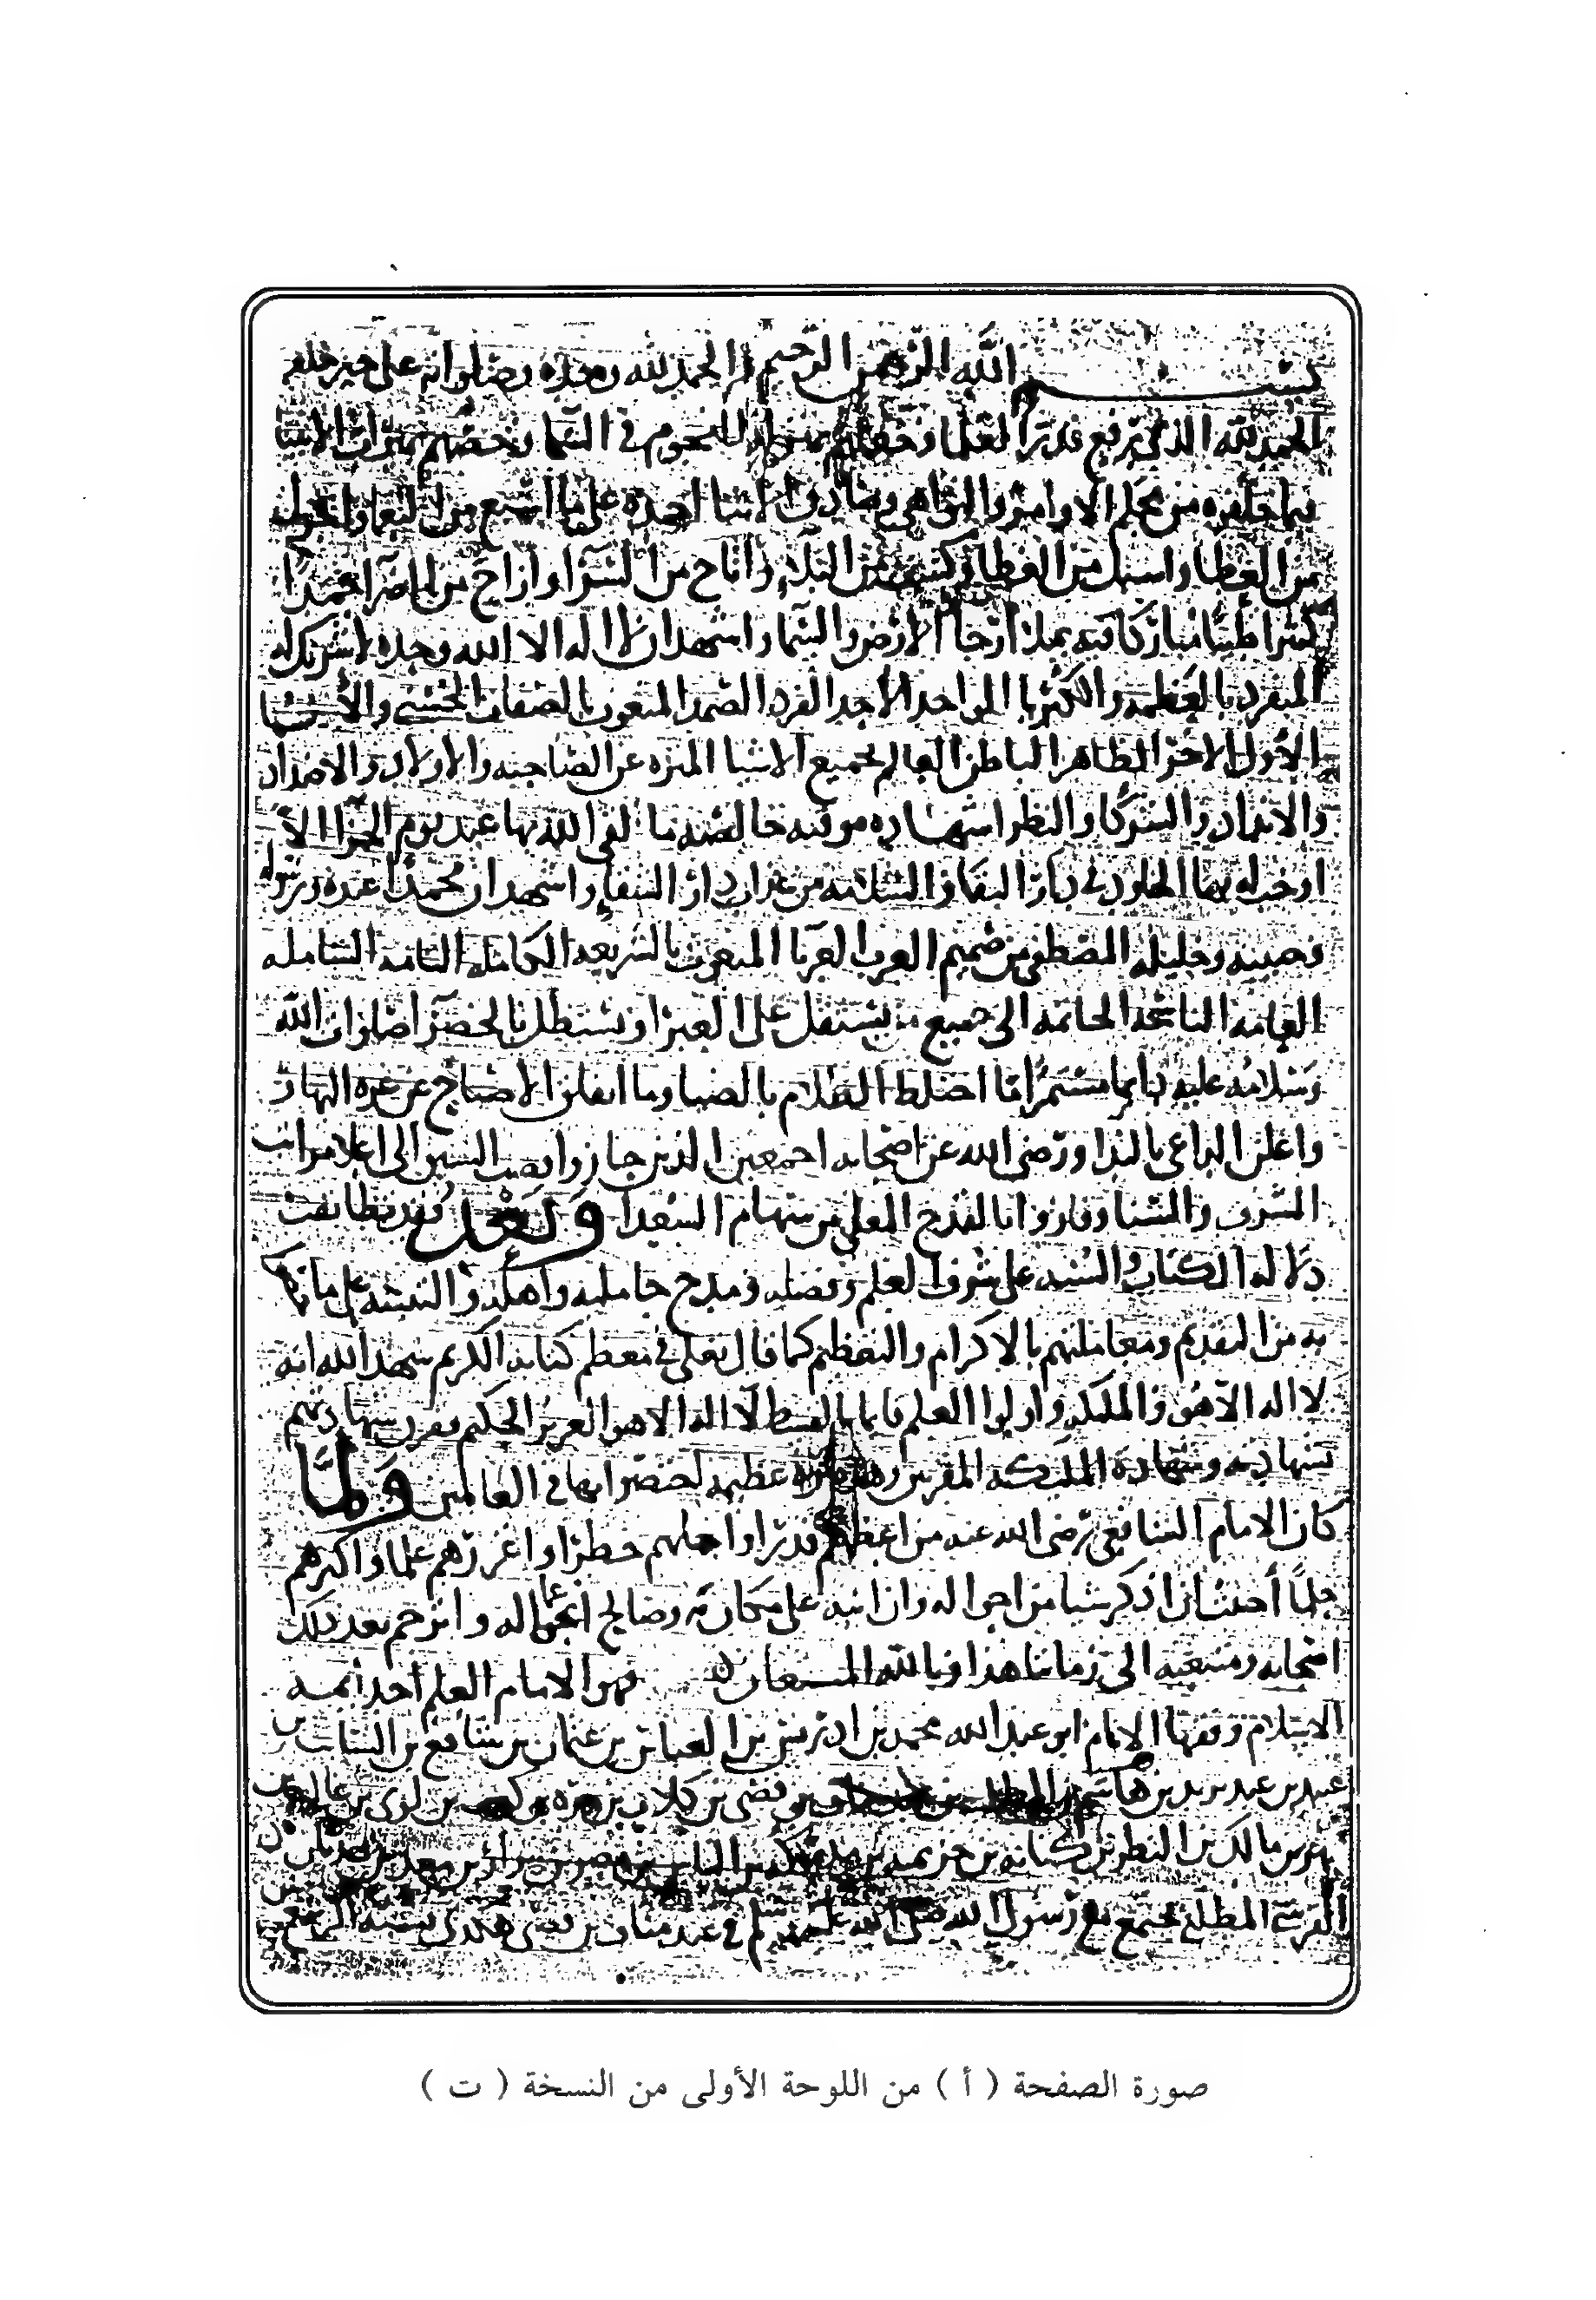 بسم الله الرحمن الرحيم الحمد لله وحده وصلواته على خير خلقه
الحمد لله الذي رفع قدر العلما للنجوم في السما وخصهم بميراث الانبيا
من الاوامر والنواهي الانبيا احمده على ما اسبغ من النعما
من العطا واسبل من الغطا وكشف من البلاء واتاح من السرا وازاح من الضرا حمدا
كثيرا طيبا مباركا فيه يملا ارجا الارض والسما واشهد ان لا اله الا الله وحده لا شريك له
المنفرد بالعظمه والكبريا الواحد الاحد الفرد الصمد المنعوت بالصفات الحسنى والاسما
الاول الاخر الظاهر الباطن العالم بجميع الاشيا المنزه عن الصاحبه والاولاد والاضداد
والانداد والشركا والنظرا شهاده موقنه خالصه ما لقى الله بها عبد يوم الجزا الا
اوجب له بها الخلود في دار البقا والسلامه من عذاب دار الشقاء واشهد ان محمدا عبده ورسوله
وحبيبه وخليله المصطفى من صميم العرب العربا المنعوت بالشريعه الكامله التامه الشامله
العامه الناسخه الخاتمه الى جميع من يستقل على الغبرا ويستظل بالخضرا صلوات الله
وسلامه عليه دايما مستمرا ما اختلط الظلام بالضيا وما انفلق الاصباح عن غره النهار
واعلن الداعي بالندا ورضي الله عن اصحابه اجمعين الذين حازوا قصب السبق الى اعلا مراتب
الشرف والسنا وفازوا بالقدح المعلى من سهام السعدا وبعد فقد تظافرت
دلاله الكتاب والسنه على شرف العلم وفضله ومدح حامليه واهله والتنبيه على ما
به من التقديم ومعاملتهم بالاكرام والتعظيم كما قال تعلى في معظم كتابه الكريم شهد الله انه
لا اله الا هو والمليكه واولوا العلم قايما بالقسط لا اله الا هو العزيز الحكيم فقرن شهادتهم
بشهادته وشهادة المليكه المقربين وهذه عظيمه اختصوا بها في العالمين ولما
كان الامام الشافعي رضي الله عنه من اعظمهم قدرا واجلهم خطرا واغزرهم علما واكثرهم
حلما أحببت ان اذكر شيا من احواله وان انبه على مكانته وصالح اعماله واترجم بعد ذلك
اصحابه ومتبعيه الى زماننا هذا وبالله المستعان فهو الامام العلم أحد ايمه
الاسلام وفقها الانام ابو عبد الله محمد بن ادريس بن العباس بن عثمان بن شافع بن السايب بن
عبيد بن عبد يزيد بن هاشم بن المطلب بن عبد مناف بن قصي بن كلاب بن مره بن كعب بن لوى بن غالب بن
فهر بن مالك بن النظر بن كنانه بن خزيمه بن مدركه بن الياس بن مضر بن نزار بن معد بن عدنان
القرشي المطلبي يجتمع مع رسول الله صلى الله عليه وسلم في عبد مناف بن قصي هكذى نسبه الربيع
صورة الصفحة ( أ ) من اللوحة الأولى من النسخة ( ت )